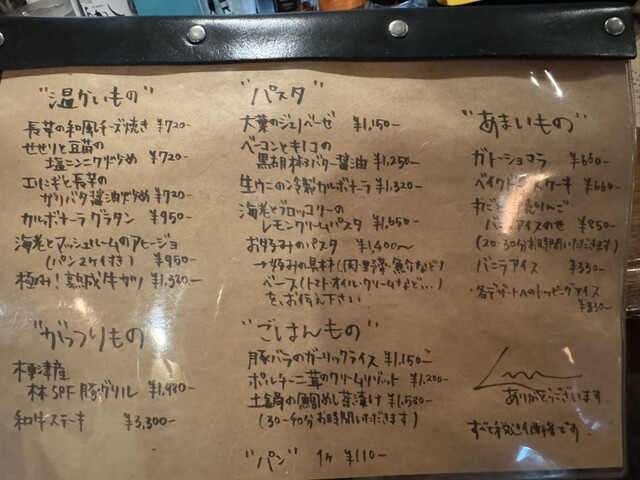 "温かいもの"
長芋の和風チーズ焼き ¥720-
せせりと豆苗の
塩ニンニク炒め ¥720-
エリンギと長芋の
ガリバタ醤油炒め ¥720-
カルボナーラグラタン ¥950-
海老とマッシュルームのアヒージョ
(パン2ケ付き) ¥950-
極み!熟成牛カツ ¥1,380-
"がっつりもの"
木更津産
林SPF豚グリル ¥1,980-
和牛ステーキ ¥3,300-
"パスタ"
大葉のジェノベーゼ ¥1,150-
ベーコンとキノコの
黒胡椒バター醤油 ¥1,250-
生ウニの冷製カルボナーラ ¥1,320-
海老とブロッコリーの
レモンクリームパスタ ¥1,650-
お好みのパスタ ¥1,400〜
→お好みの具材(肉・野菜・魚介など)
ベース(トマト・オイル・クリームなど...)
を、お伝え下さい
"ごはんもの"
豚バラのガーリックライス ¥1,150-
ポルチーニ茸のクリームリゾット ¥1,200-
土鍋の鯛めし茶漬け ¥1,580-
(30-40分お時間いただきます)
"パン" 1ヶ ¥110-
"あまいもの"
ガトーショコラ ¥660-
ベイクド ケーキ ¥660-
りんご
バニラアイスのせ ¥850-
(20-30分お時間いただきます)
バニラアイス ¥330-
・各デザートへのトッピングアイス
¥330-
ありがとうございます
すべて税込価格です